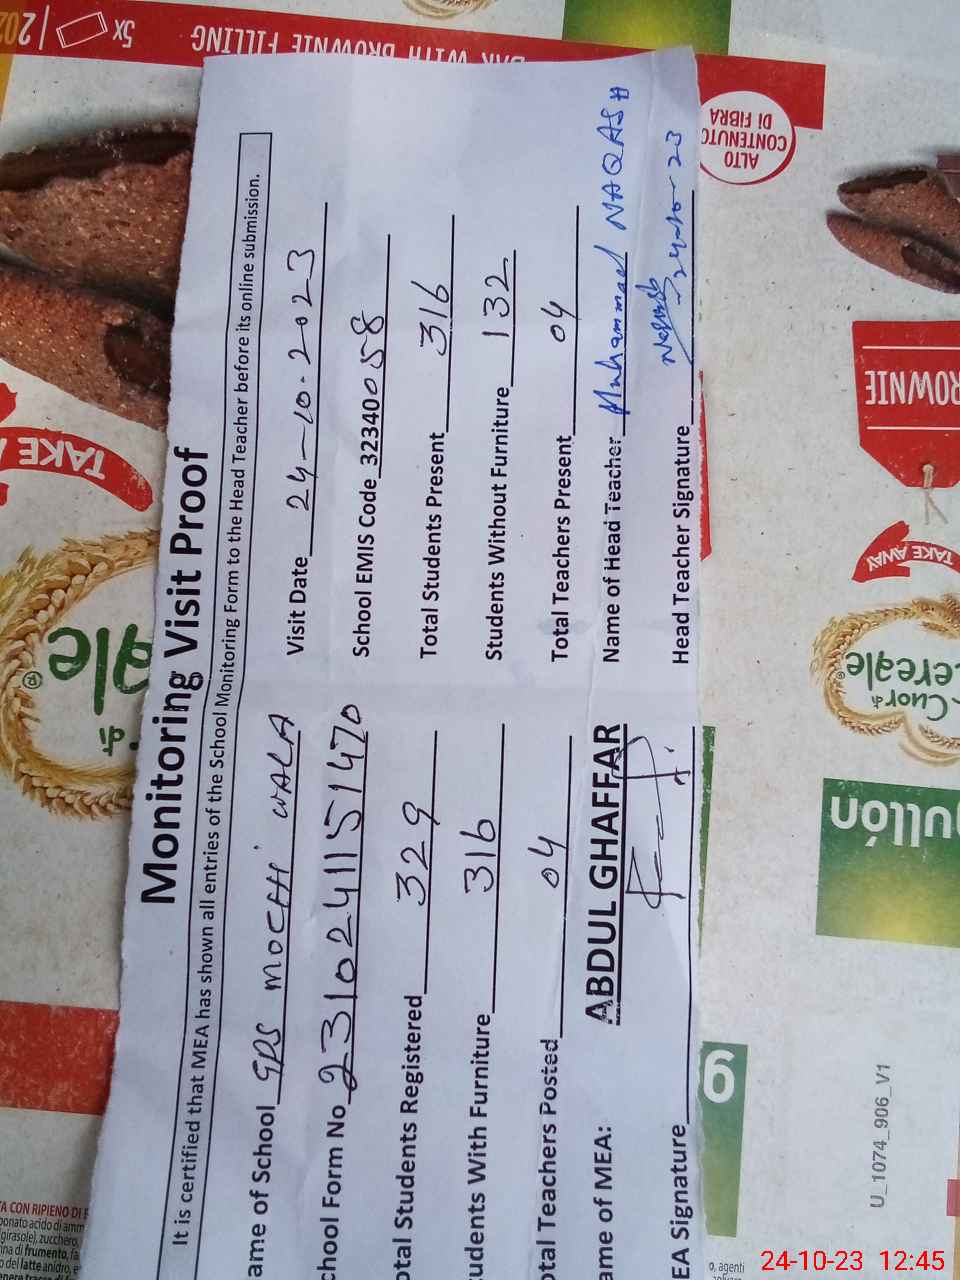 Monitoring Visit Proof
It is certified that MEA has shown all entries of the School Monitoring Form to the Head Teacher before its online submission.
ame of School GPS MOCHI WALA Visit Date 24-10-2023
chool Form No 2310241151470 School EMIS Code 32340058
otal Students Registered 329 Total Students Present 316
tudents With Furniture 316 Students Without Furniture 132
otal Teachers Posted 04 Total Teachers Present 04
ame of MEA: ABDUL GHAFFAR Name of Head Teacher Muhammad NAQASH
EA Signature Head Teacher Signature 24-10-23
5x
BAR WITH BROWNIE FILLING
ALTO
CONTENUTO
DI FIBRA
TAKE
ale
di
®
ROWNIE
TAKE AWAY
Cuor di
cereale®
gullón
6
U_1074_906_V1
TA CON RIPIENO DI
bonato acido di amm
girasole), zucchero,
na di frumento, fa
o del latte anidro, e
o, agenti
24-10-23 12:45